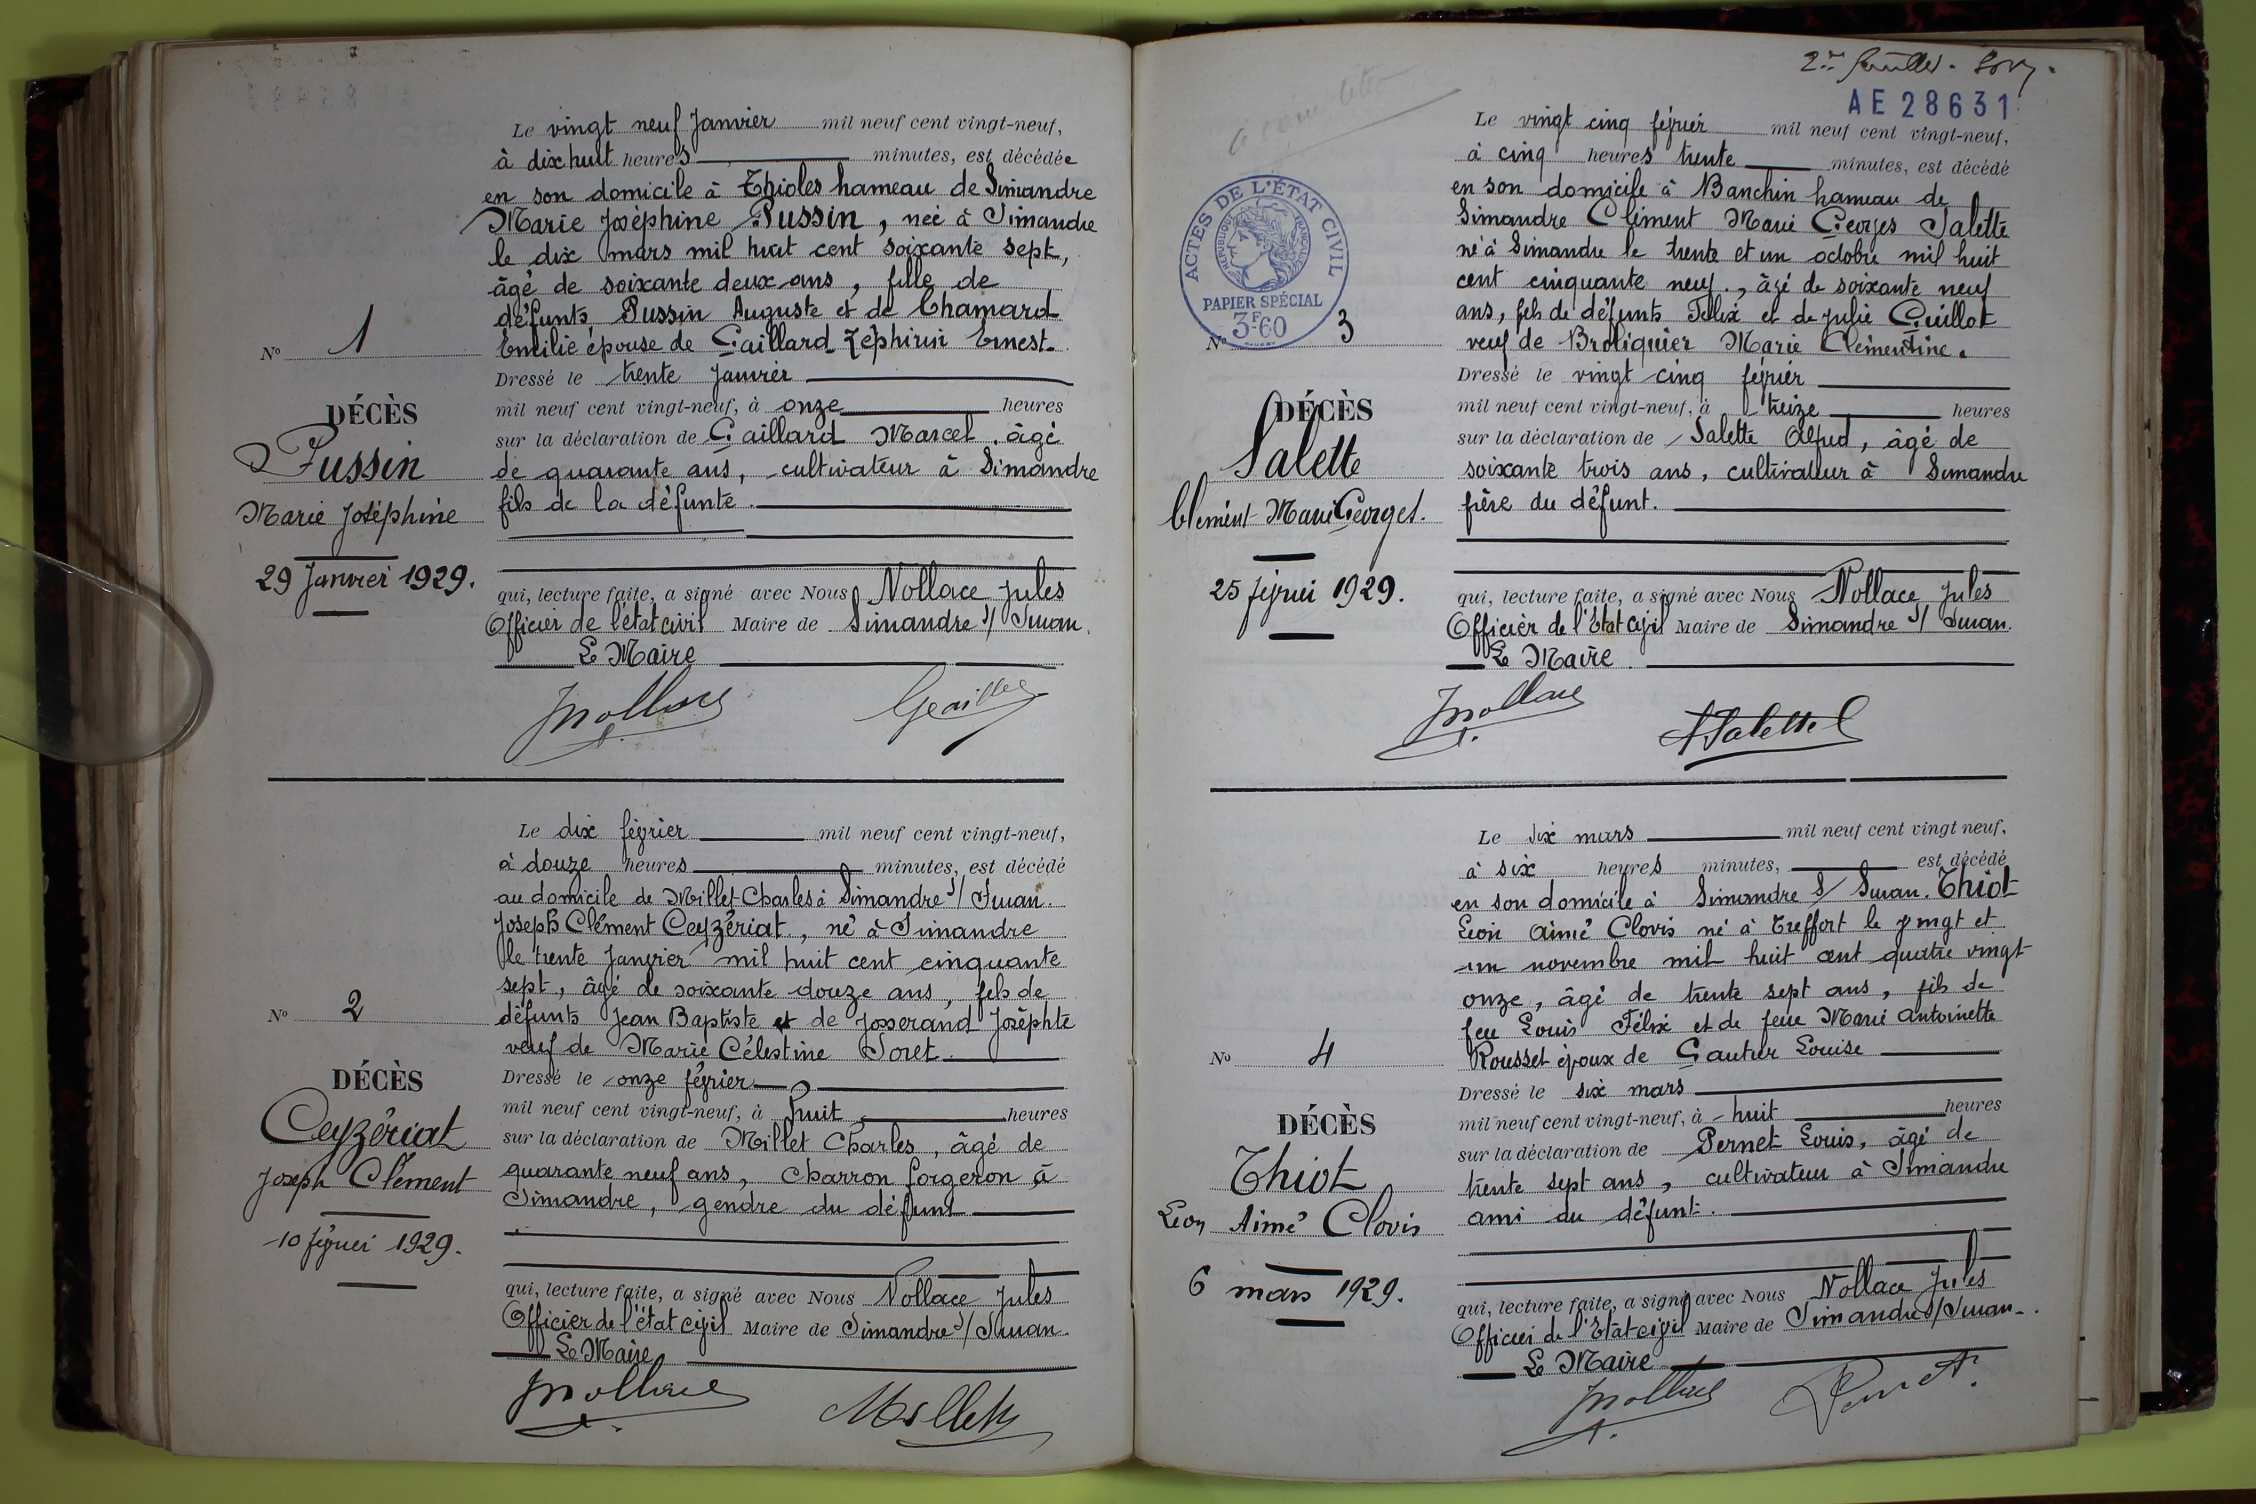 Le vingt neuf Janvier mil neuf cent vingt-neuf,
à dix huit heures minutes, est décédée
en son domicile à Thioles hameau de Simandre
Marie Joséphine Pussin, née à Simandre
le dix mars mil huit cent soixante sept,
âgé de soixante deux ans, fille de
défunts Pussin Auguste et de Chamard
Emilie épouse de Gaillard Zéphirin Ernest.
Nº 1
Dressé le trente janvier
mil neuf cent vingt-neuf, à onze heures
sur la déclaration de Gaillard Marcel. âgé
de quarante ans, cultivateur à Simandre
fils de la défunte.
DÉCÈS
Pussin
Marie Joséphine
29 Janvier 1929.
qui, lecture faite, a signé avec Nous Nollace Jules
Officier de l'état civil Maire de Simandre s/ Suran.
Le Maire
JNollace
Le dix février mil neuf cent vingt-neuf,
à douze heures minutes, est décédé
au domicile de Millet Charles à Simandre s/ Suran.
Joseph Clément Ceyzériat, né à Simandre
le trente Janvier mil huit cent cinquante
sept, âgé de soixante douze ans, fils de
défunts Jean Baptiste et de Josserand Josephte
veuf de Marie Célestine Soret.
Nº 2
Dressé le onze février
mil neuf cent vingt-neuf, à huit heures
sur la déclaration de Millet Charles, âgé de
quarante neuf ans, charron forgeron à
Simandre, gendre du défunt
DÉCÈS
Ceyzériat
Joseph Clément
10 février 1929.
qui, lecture faite, a signé avec Nous Nollace Jules
Officier de l'état civil Maire de Simandre s/ Suran.
Le Maire
JNollace
Millet
AE 28631
ACTES DE L'ÉTAT CIVIL
RÉPUBLIQUE FRANÇAISE
PAPIER SPÉCIAL
3F.60
Le vingt cinq février mil neuf cent vingt-neuf,
à cinq heures trente minutes, est décédé
en son domicile à Banchin hameau de
Simandre Clément Marie Georges Salette
né à Simandre le trente et un octobre mil huit
cent cinquante neuf., âgé de soixante neuf
ans, fils de défunts Félix et de Julie Guillot
veuf de Broliquier Marie Clémentine.
Nº 3
Dressé le vingt cinq février
mil neuf cent vingt-neuf, à treize heures
sur la déclaration de Salette Alfred, âgé de
soixante trois ans, cultivateur à Simandre
frère du défunt.
DÉCÈS
Salette
Clément Marie Georges.
25 février 1929.
qui, lecture faite, a signé avec Nous Nollace Jules
Officier de l'Etat civil Maire de Simandre s/ Suran.
Le Maire.
JNollace
ASalette
Le six mars mil neuf cent vingt neuf,
à six heures minutes, est décédé
en son domicile à Simandre s/ Suran. Thiot
Léon Aimé Clovis né à Treffort le vingt et
un novembre mil huit cent quatre vingt
onze, âgé de trente sept ans, fils de
feu Louis Félix et de feue Marie Antoinette
Rousset époux de Gautier Louise
Nº 4
Dressé le six mars
mil neuf cent vingt-neuf, à huit heures
sur la déclaration de Pernet Louis, âgé de
trente sept ans, cultivateur à Simandre
ami du défunt.
DÉCÈS
Thiot
Léon Aimé Clovis
6 mars 1929.
qui, lecture faite, a signé avec Nous Nollace Jules
Officier de l'Etat civil Maire de Simandre s/ Suran.
Le Maire
JNollace
Pernet